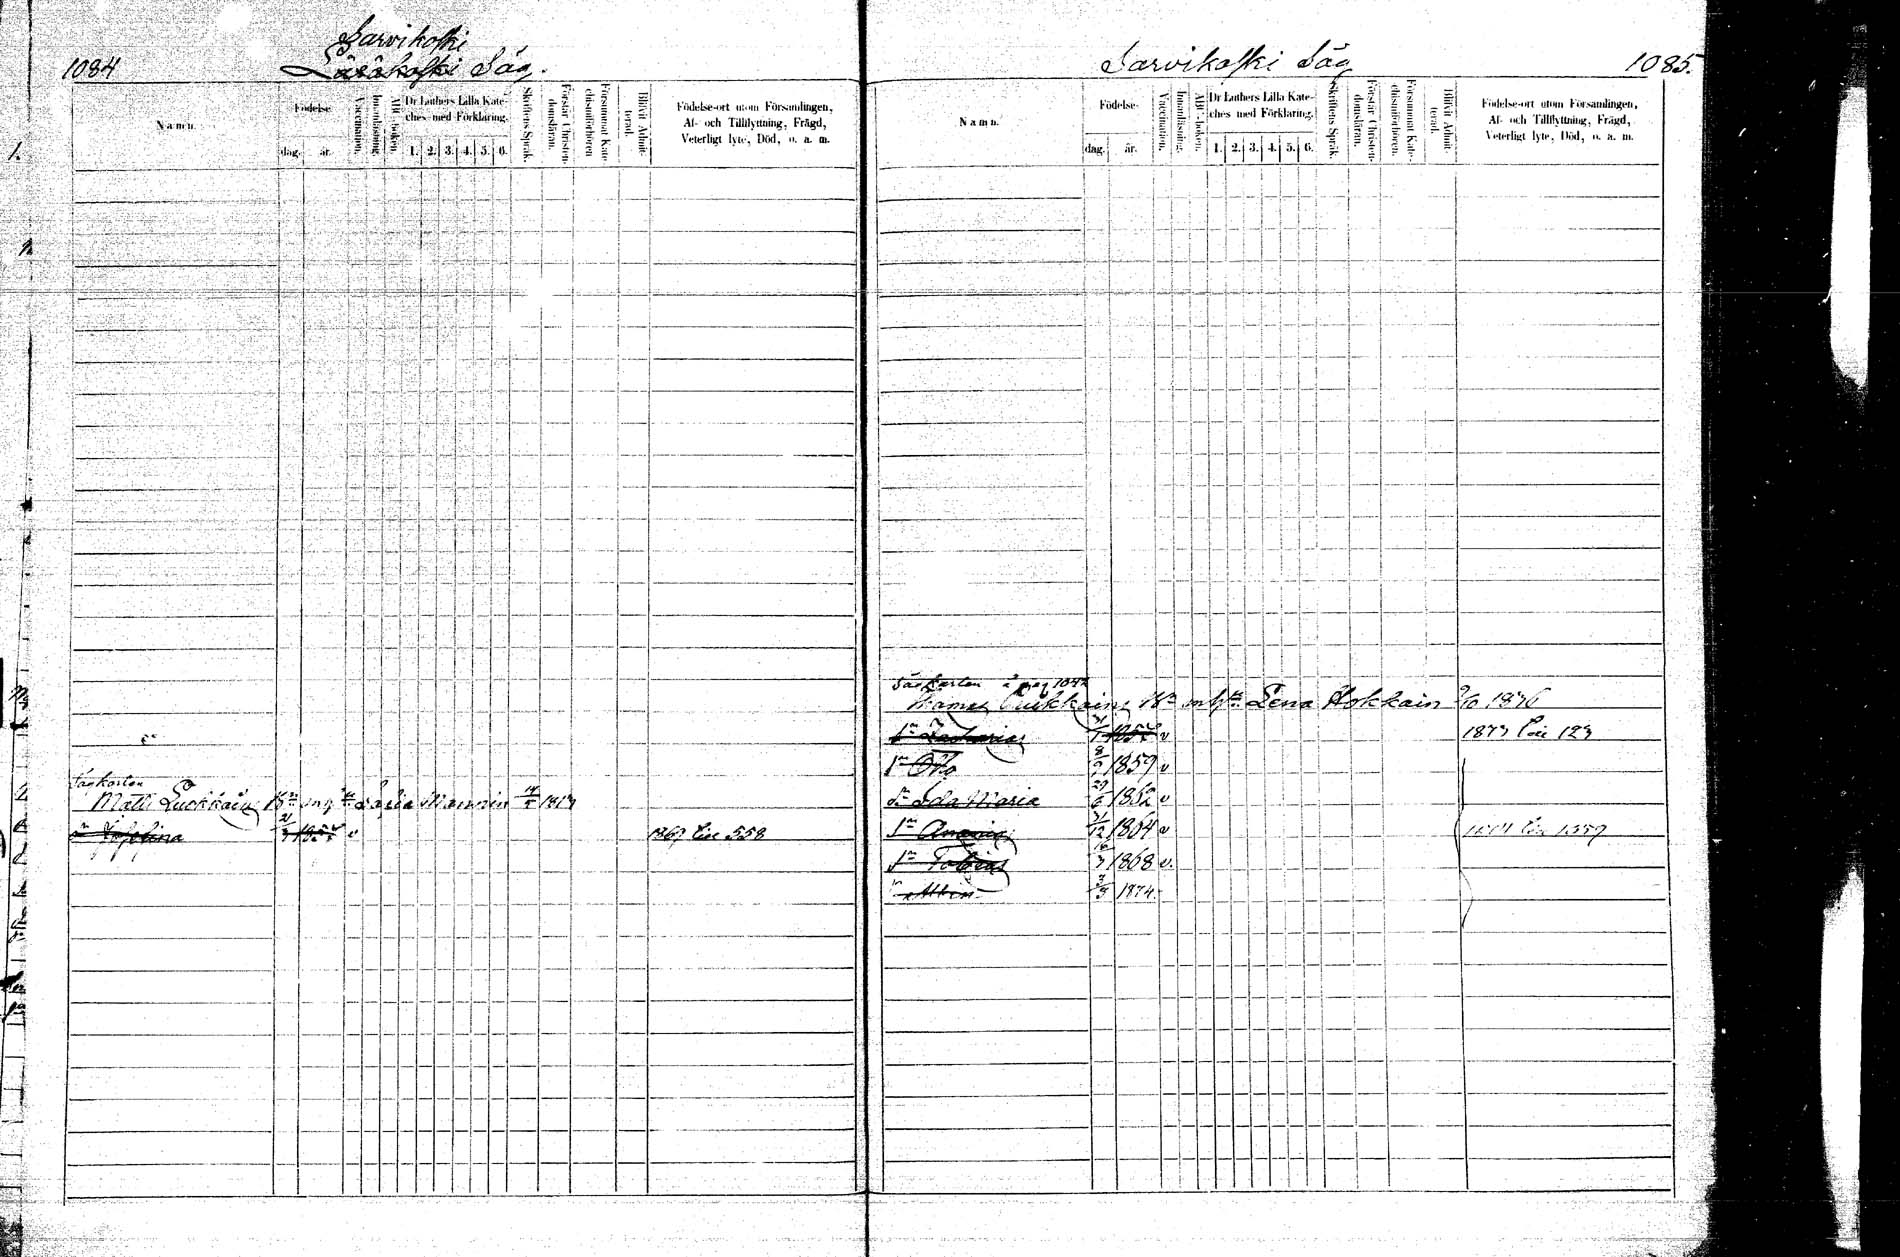 1084
Sarvikoski
Säräkoski Såg.
Namn.
Födelse
dag. år.
Vaccination.
Innanläsning.
ABC-boken.
Dr Luthers Lilla Kate-
ches med Förklaring.
1. 2. 3. 4. 5. 6.
Skriftens Språk.
Förstår Christen-
domsläran.
Försummat Kate-
chismiförhören
Blifvit Admit-
terad.
Födelse-ort utom Församlingen,
Af- och Tillflyttning, Frägd,
Veterligt lyte, Död, o. a. m.
Sågkarlen
Matti Luckkain
Mannin 1817
Josefina v 1869 Cise 558
Sarvikoski Såg
1085.
Namn.
Födelse-
dag. år.
Vaccination.
Innanläsning.
ABC-boken.
Dr Luthers Lilla Kate-
ches med Förklaring.
1. 2. 3. 4. 5. 6.
Skriftens Språk.
Förstår Christen-
domsläran.
Försummat Kate-
chismiförhören.
Blifvit Admit-
terad.
Födelse-ort utom Församlingen,
Af- och Tillflyttning, Frägd,
Veterligt lyte, Död, o. a. m.
Sågkarlen å pag 1042
Lena Hokkain 1876
Zacharias v 1873 123
Otto 1859 v
Ida Maria 1862 v
31/12 1864 v
Tobias 16/3 1868 v.
Albin 3/3 1874.